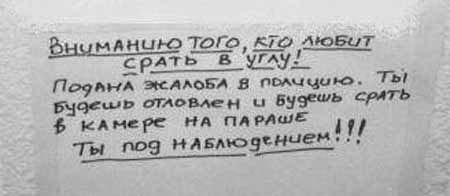 Вниманию того, кто любит
срать в углу!
Подана жалоба в полицию. Ты
будешь отловлен и будешь срать
в камере на параше
Ты под наблюдением!!!